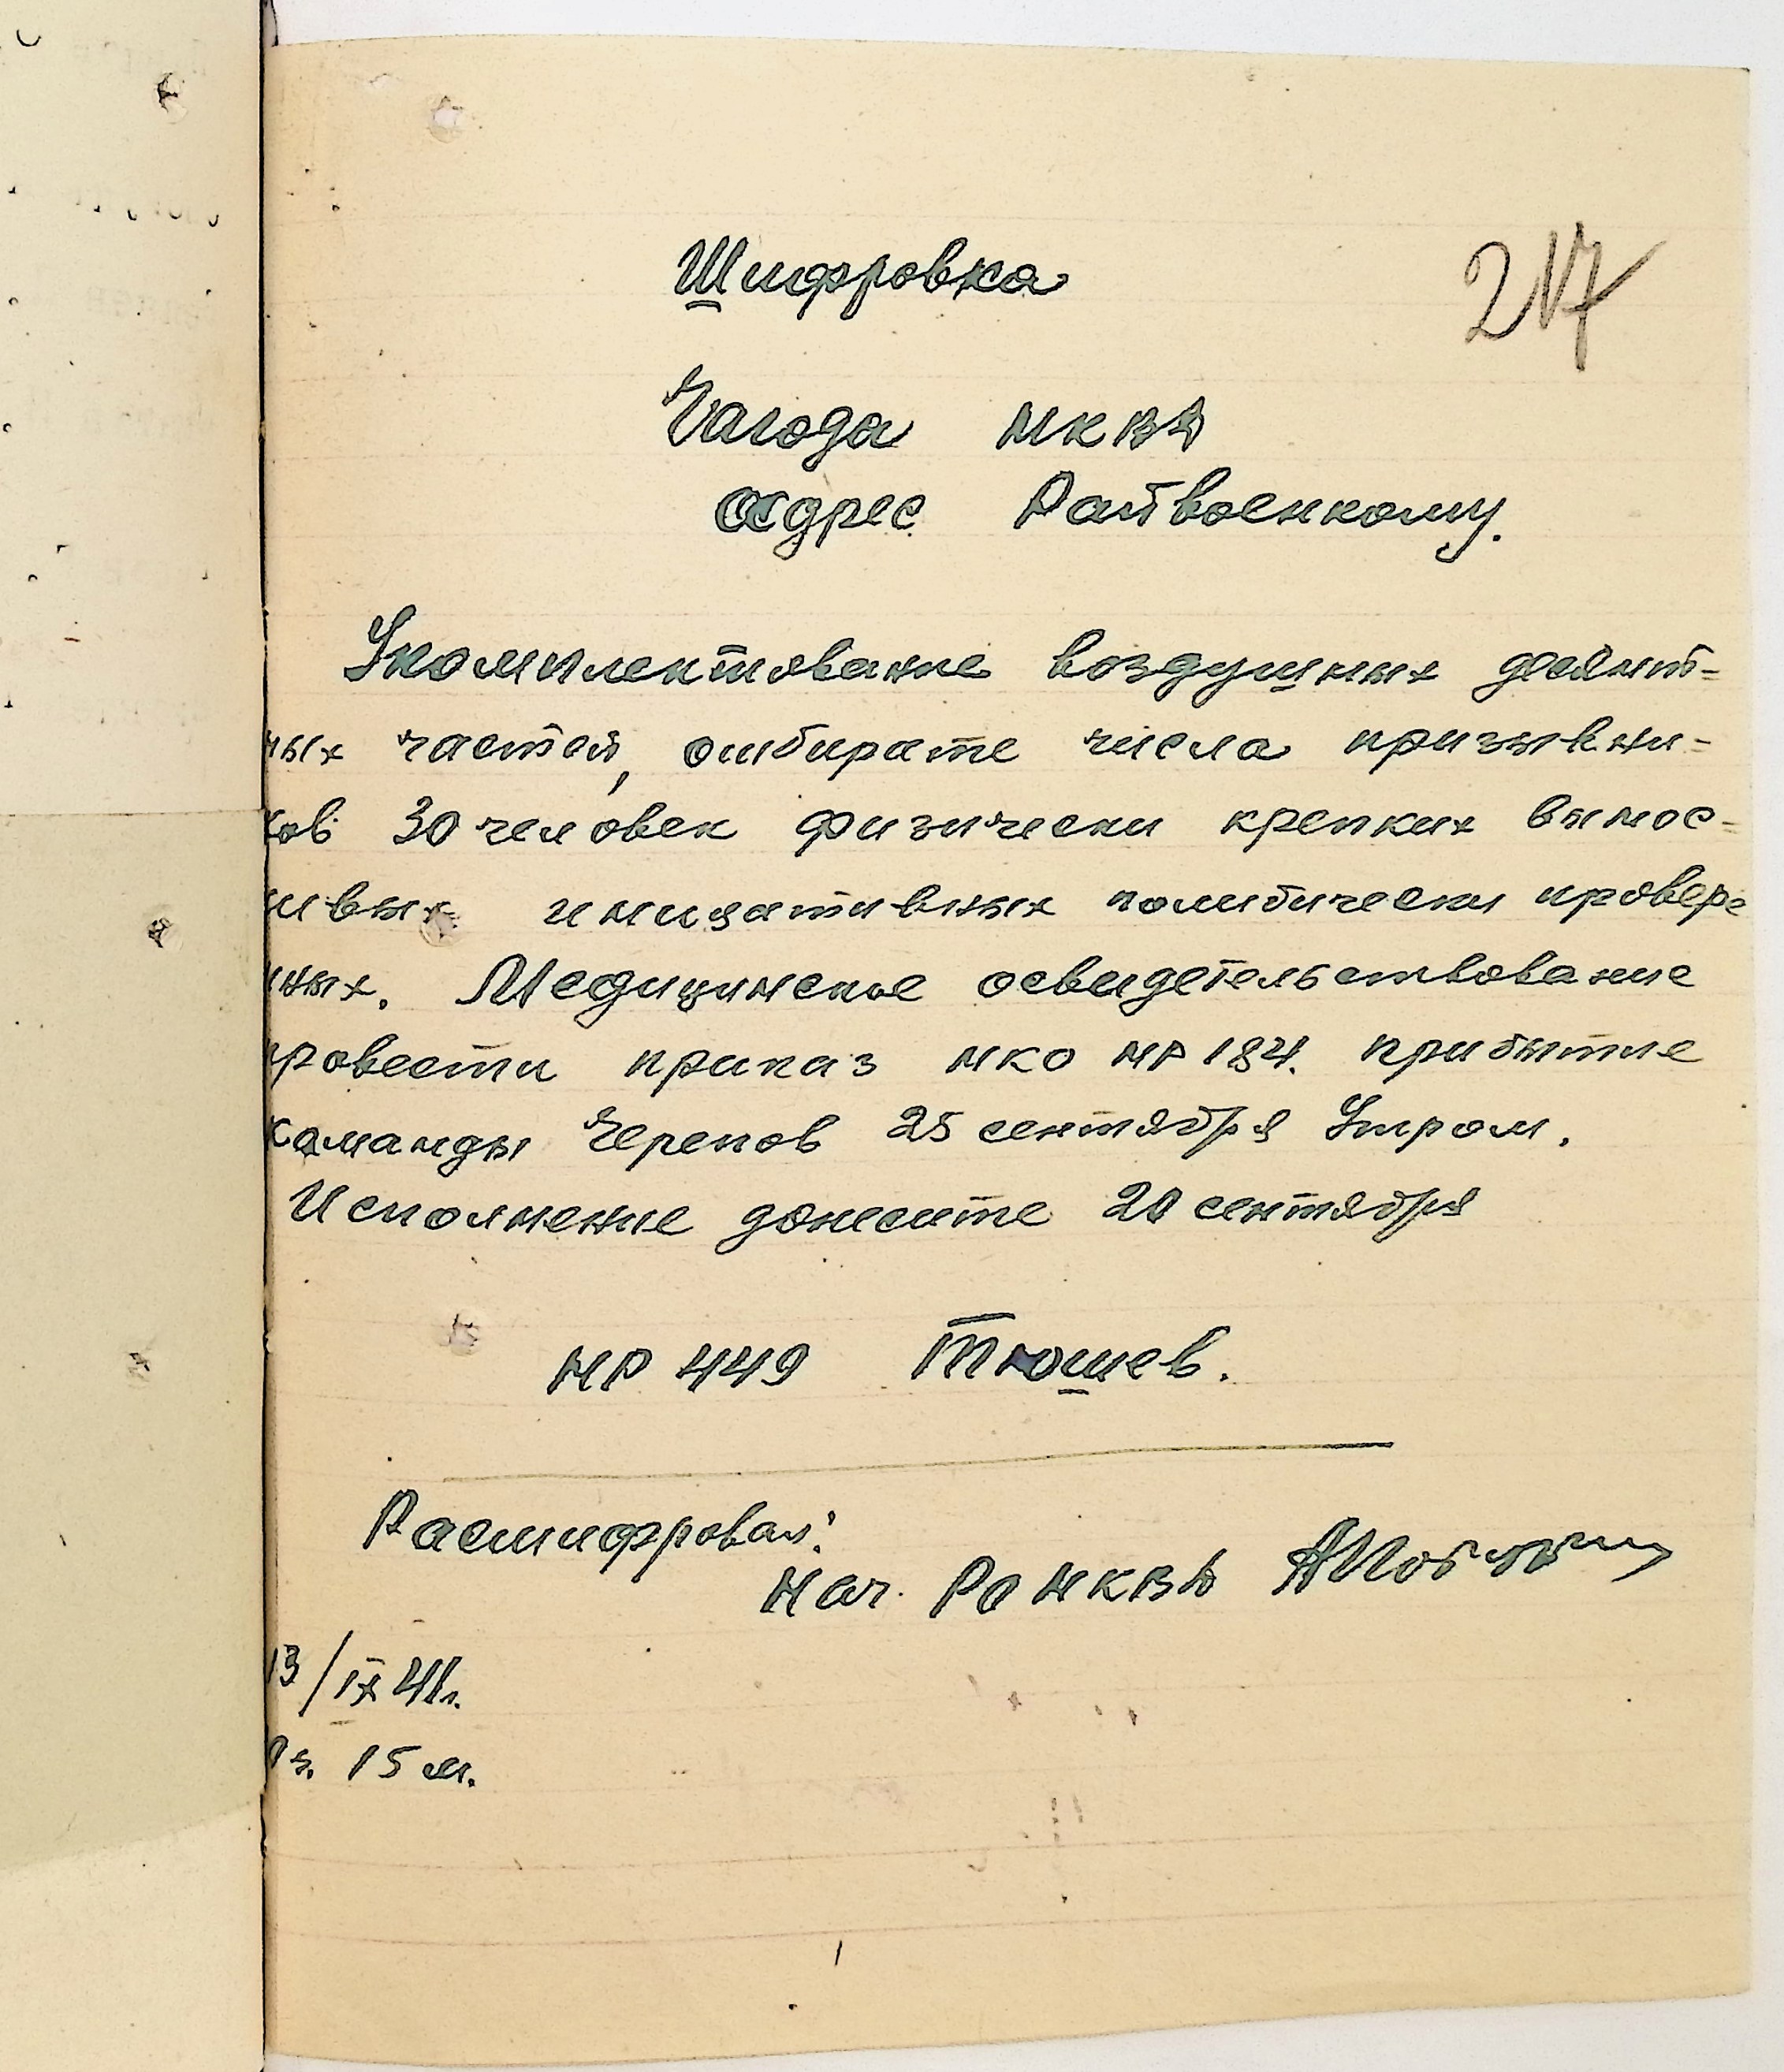 217
Шифровка
Чагода НКВД
адрес Райвоенкому.
Укомплектование воздушных десант-
ных частей, отбирате числа призывни-
ков 30 человек физически крепких вынос-
ивых инициативных политически провер-
нных. Медицинское освидетельствование
провести приказ НКО НР 184. прибытие
команды Черепов 25 сентября Утром.
Исполнение донесите 20 сентября
НР 449 Тюшев.
Расшифровал:
Нач. РО НКВД
13/IX 41г.
ч. 15 м.